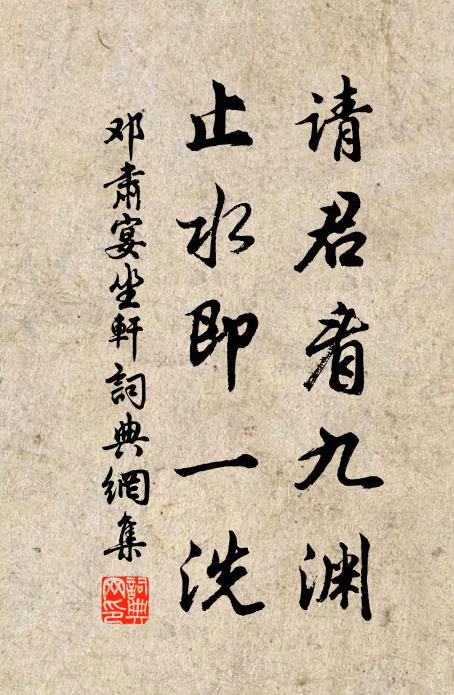 请君看九渊
止水即一洗
邓肃宴坐轩詞典網集
詞典网印